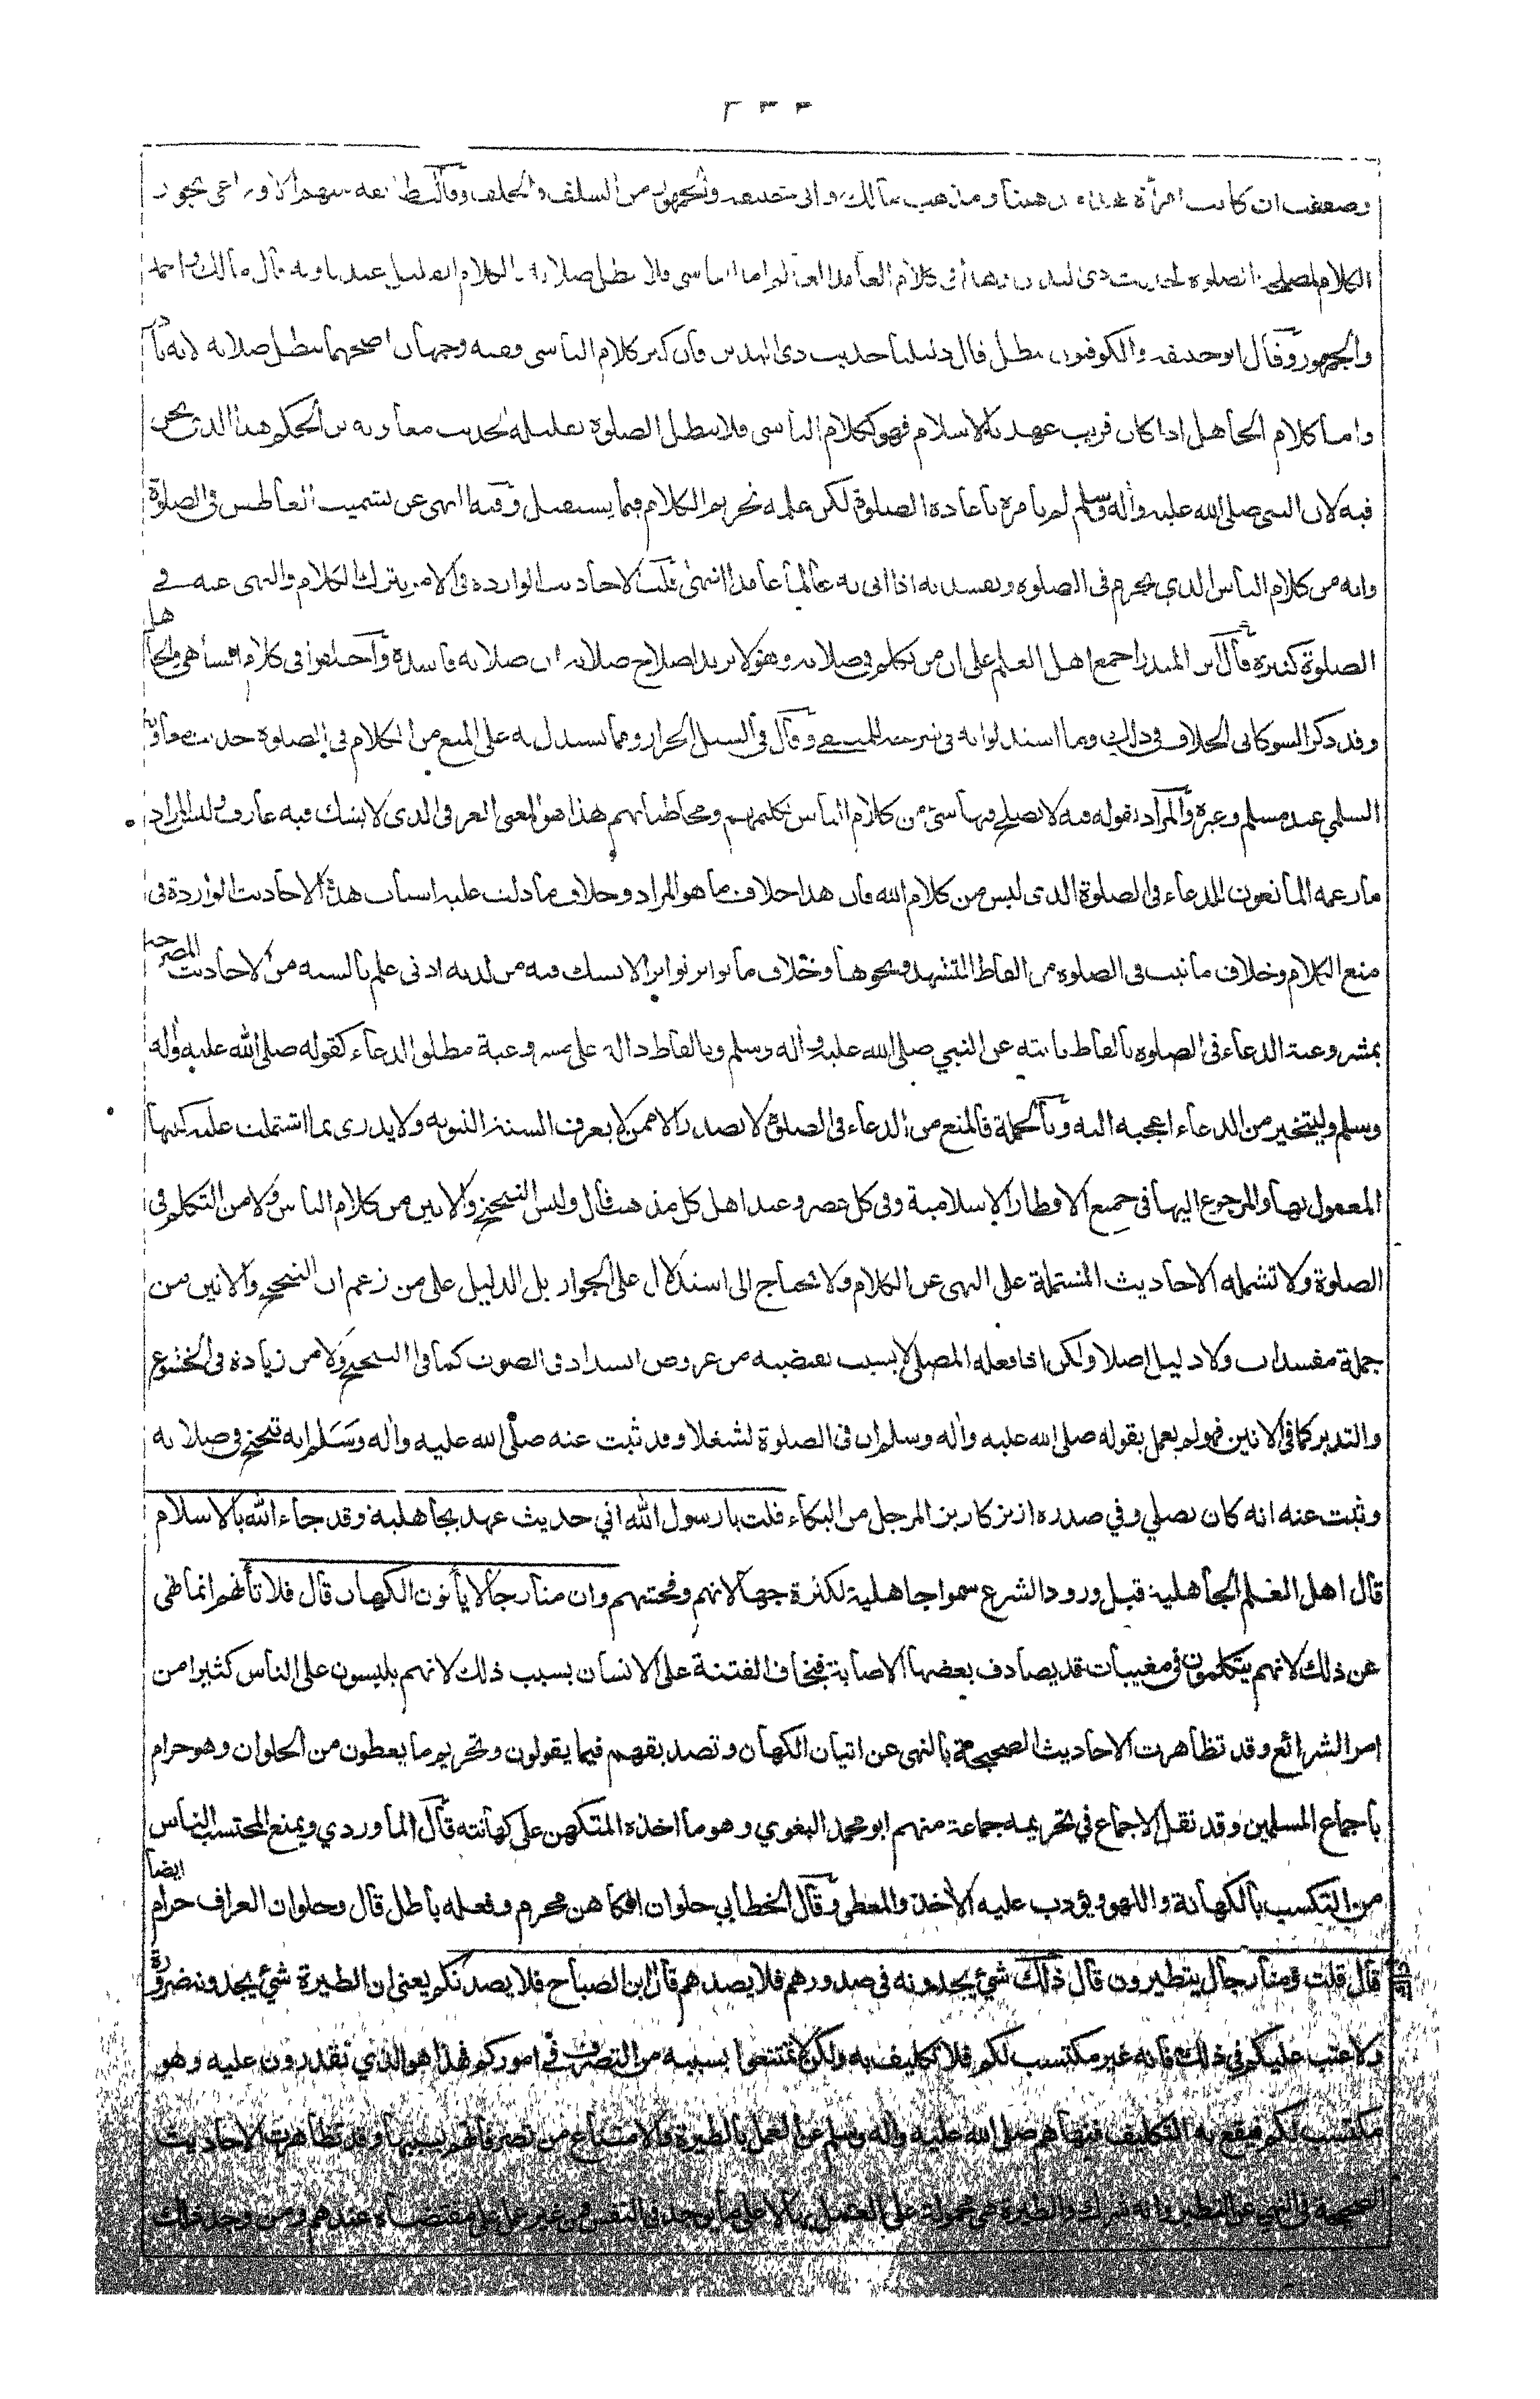 ٢٣٣
وصفقت ان كانت امرأة هذا مذهبنا ومذهب مالك وابي حنيفة والجمهور من السلف والخلف وقالت طائفة منهم الاوزاعي يجوز
الكلام لمصلحة الصلوة لحديث ذي اليدين وهذا في كلام العامد العالم اما الناسي فلا تبطل صلاته بالكلام القليل عندنا وبه قال مالك واحمد
والجمهور وقال ابو حنيفة والكوفيون تبطل قال دليلنا حديث ذي اليدين فان كثر كلام الناسي ففيه وجهان اصحهما تبطل صلاته لانه نادر
واما كلام الجاهل اذا كان قريب عهد بالاسلام فهو ككلام الناسي فلا تبطل الصلوة بقليله لحديث معاوية بن الحكم هذا الذي نحن
فيه لان النبي صلى الله عليه واله وسلم لم يأمره باعادة الصلوة لكن علمه تحريم الكلام فيما يستقبل وفيه النهي عن تشميت العاطس في الصلوة
وانه من كلام الناس الذي يحرم في الصلوة وتفسد به اذا اتى به عالما عامدا انتهى قلت الاحاديث الواردة في الامر بترك الكلام والنهي عنه في
الصلوة كثيرة قال ابن المنذر اجمع اهل العلم على ان من تكلم في صلاته وهو لا يريد اصلاح صلاته ان صلاته فاسدة واختلفوا في كلام الساهي والجاهل
وقد ذكر الشوكاني الخلاف في ذلك وما استدلوا به في شرحه للمنتقى وقال في السيل الجرار ومما يستدل به على المنع من الكلام في الصلوة حديث معاوية
السلمي عند مسلم وغيره والمراد بقوله فيه لا يصلح فيها شئ من كلام الناس تكليمهم ومخاطباتهم هذا هو المعنى العرفي الذي لا يشك فيه عارف وليس المراد
ما زعمه المانعون للدعاء في الصلوة الذي ليس من كلام الله فان هذا خلاف ما هو المراد وخلاف ما دلت عليه اسباب هذه الاحاديث الواردة في
منع الكلام وخلاف ما ثبت في الصلوة من الفاظ التشهد ونحوها وخلاف ما تواتر تواترا لا يشك فيه من لديه ادنى علم بالسنة من الاحاديث المصرحة
بمشروعية الدعاء في الصلوة بالفاظ ثابتة عن النبي صلى الله عليه واله وسلم وبالفاظ دالة على مشروعية مطلق الدعاء كقوله صلى الله عليه واله
وسلم وليتخير من الدعاء اعجبه اليه وبالجملة فالمنع من الدعاء في الصلوة لا يصدر الا ممن لا يعرف السنة النبوية ولا يدري بما اشتملت عليه كتبها
المعمول بها والمرجوع اليها في جميع الاقطار الاسلامية وفي كل عصر وعند اهل كل مذهب قال وليس التنحنح والانين من كلام الناس ولا من التكلم في
الصلوة ولا تشمله الاحاديث المشتملة على النهي عن الكلام ولا نحتاج الى استدلال على الجواز بل الدليل على من زعم ان التنحنح والانين من
جملة مفسدات ولا دليل اصلا ولكن اذا فعله المصلي لا بسبب يقتضيه من عروض انسداد في الصوت كما في التنحنح ولا من زيادة في الخشوع
والتدبر كما في الانين فهو لم يعمل بقوله صلى الله عليه واله وسلم ان في الصلوة لشغلا وقد ثبت عنه صلى الله عليه واله وسلم انه تنحنح في صلاته
وثبت عنه انه كان يصلي وفي صدره ازيز كازيز المرجل من البكاء قلت يا رسول الله اني حديث عهد بجاهلية وقد جاء الله بالاسلام
قال اهل العلم الجاهلية قبل ورود الشرع سموا جاهلية لكثرة جهالاتهم وفحشهم وان منا رجالا يأتون الكهان قال فلا تأتهم انما نهى
عن ذلك لانهم يتكلمون في مغيبات قد يصادف بعضها الاصابة فيخاف الفتنة على الانسان بسبب ذلك لانهم يلبسون على الناس كثيرا من
امر الشرائع وقد تظاهرت الاحاديث الصحيحة بالنهي عن اتيان الكهان وتصديقهم فيما يقولون وتحريم ما يعطون من الحلوان وهو حرام
باجماع المسلمين وقد نقل الاجماع في تحريمه جماعة منهم ابو محمد البغوي وهو ما اخذه المتكهن على كهانته قال الماوردي ويمنع المحتسب الناس
من التكسب بالكهانة واللهو ويؤدب عليه الأخذ والمعطي وقال الخطابي حلوان الكاهن محرم وفعله باطل قال وحلوان العراف حرام ايضا
قال قلت ومنا رجال يتطيرون قال ذلك شئ يجدونه في صدورهم فلا يصدهم قال ابن الصباح فلا يصدنكم يعني ان الطيرة شئ يجدونه ضرورة
ولا عتب عليكم في ذلك فانه غير مكتسب لكم فلا تكليف به ولكن لا تمتنعوا بسببه من التصرف في اموركم فهذا هو الذي تقدرون عليه وهو
مكتسب لكم فيقع به التكليف فنهاهم صلى الله عليه واله وسلم عن العمل بالطيرة والامتناع من تصرفاتهم بسببها وقد تظاهرت الاحاديث
الصحيحة في النهي عن التطير وانه شرك والطيرة هي محمولة على العمل بها لا على ما يوجد في النفس من غير عمل على مقتضاه عندهم ومن وجد ذلك